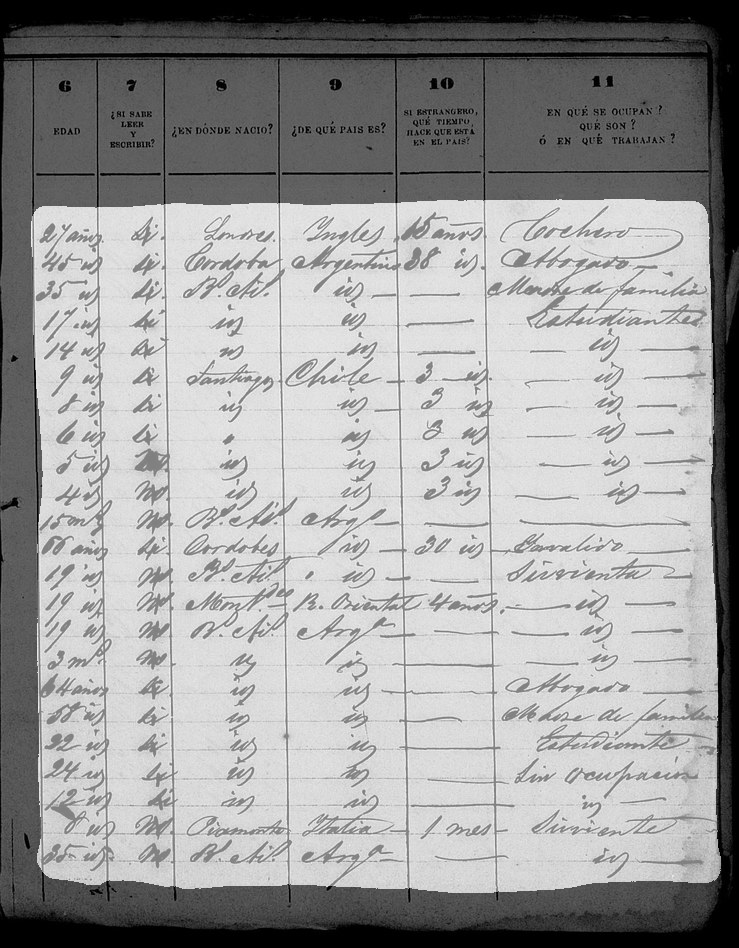 6 7 8 9 10 11
EDAD ¿SI SABE LEER Y ESCRIBIR? ¿EN DÓNDE NACIO? ¿DE QUÉ PAIS ES? SI ESTRANGERO, QUÉ TIEMPO HACE QUE ESTÁ EN EL PAIS? EN QUÉ SE OCUPAN? QUÉ SON? Ó EN QUÉ TRABAJAN?
27 años Si. Londres. Ingles 15 años. Cochero
45 id Si. Cordoba Argentino 38 id. Abogado
35 id Si. Bs. Ais. id — — Madre de familia
17 id Si id id — Estudiantes
14 id Si id id — — id —
9 id Si Santiago Chile — 3 — id. — id —
8 id Si id id — 3 id — id —
6 id Si " id 3 id — id —
5 id id id 3 id — id —
4 id No. id id 3 id — id —
15 ms. No. Bs. Ais. Arga — — —
66 años Si. Cordobes id — 30 id — Invalido —
19 id No. Bs. Ais. " id — — Sirvienta —
19 id No. Montdeo R. Oriental 4 años. — id —
19 id No Bs. Ais. Arga — — — id —
3 ms. No. id id — — id —
64 años Si. id id — — Abogado —
58 id Si id id — Madre de familia
22 id Si id id — Estudiante —
24 id Si id id — Sin ocupacion
12 id Si id id — id —
8 id No. Piamonte Italia — 1 mes — Sirviente
35 id. No. Bs. Ais. Arga — — id —